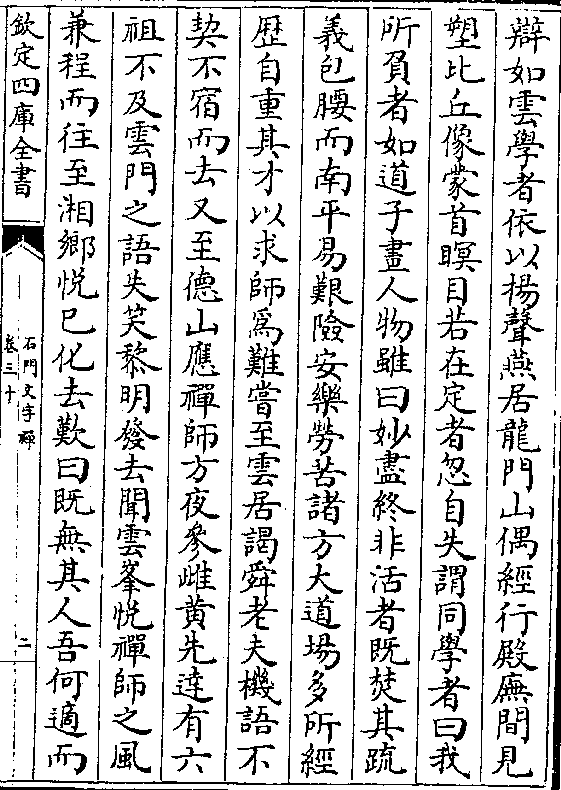 辯如雲學者依以揚聲燕居龍門山偶經行殿廡間見
塑比丘像蒙首瞑目若在定者忽自失謂同學者曰我
所負者如道子畫人物雖曰妙盡終非活者既焚其疏
義包腰而南平易艱險安樂勞苦諸方大道場多所經
歴自重其才以求師爲難嘗至雲居謁舜老夫機語不
契不宿而去又至德山應禪師方夜參雌黄先達有六
祖不及雲門之語失笑黎明發去聞雲峯悦禪師之風
兼程而往至湘鄉悦已化去歎曰既無其人吾何適而
欽定四庫全書
石門文字禪
卷三十
二